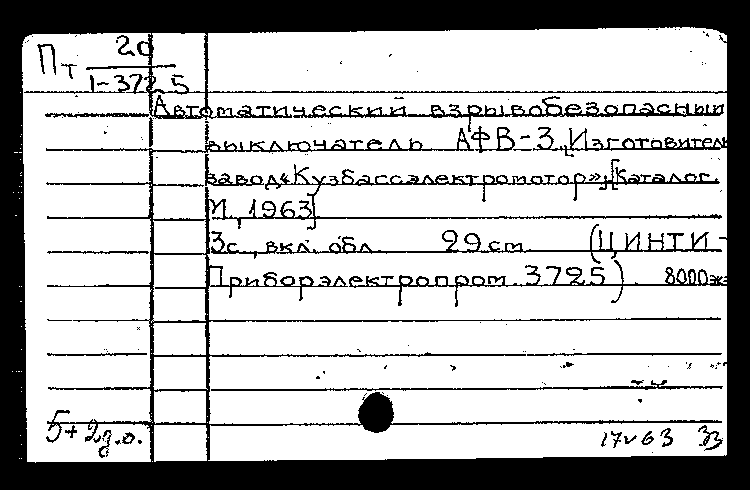 Пт 20
1-372 5
Автоматический взрывобезопасный
выключатель АФВ-3. [Изготовитель
завод «Кузбассэлектромотор»]. [Каталог.
М., 1963]
3с., вкл. обл. 29 см. (ЦИНТИ-
Приборэлектропром. 3725). 8000 экз
5+2д.о.
17 V 63 33